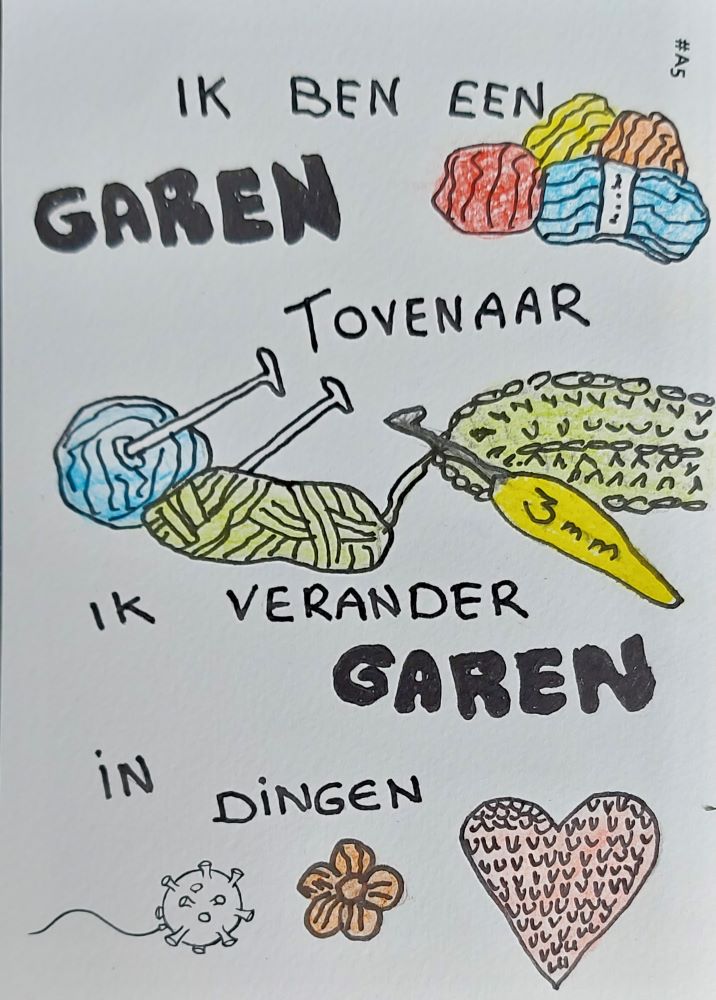 #A5
IK BEN EEN
GAREN
TOVENAAR
3mm
IK VERANDER
GAREN
iN
DiNGEN